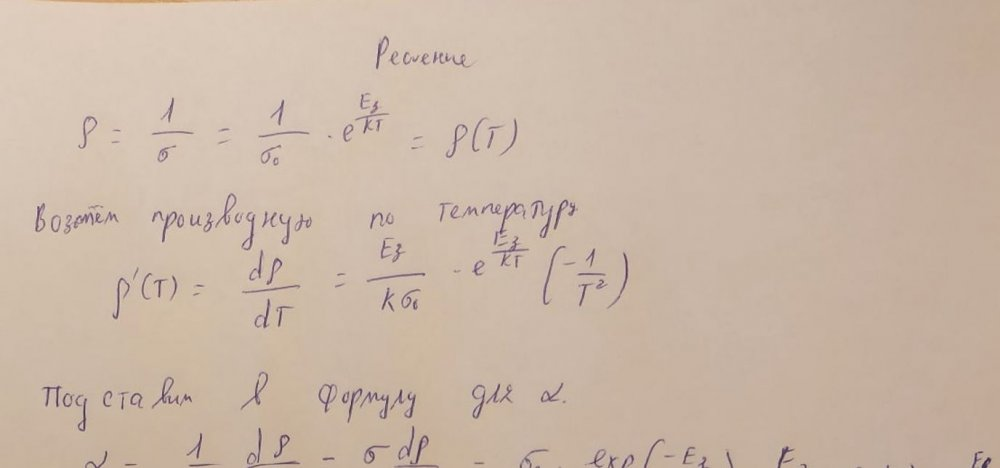 Решение
ρ = 1/σ = 1/σ₀ · e^(Eз/kT) = ρ(T)
Возьмём производную по температуре
ρ'(T) = dρ/dT = Eз/kσ₀ · e^(Eз/kT) (-1/T²)
Подставим в формулу для α.
α = 1 dρ = σ dρ = σ₀ exp(-Eз) Eз